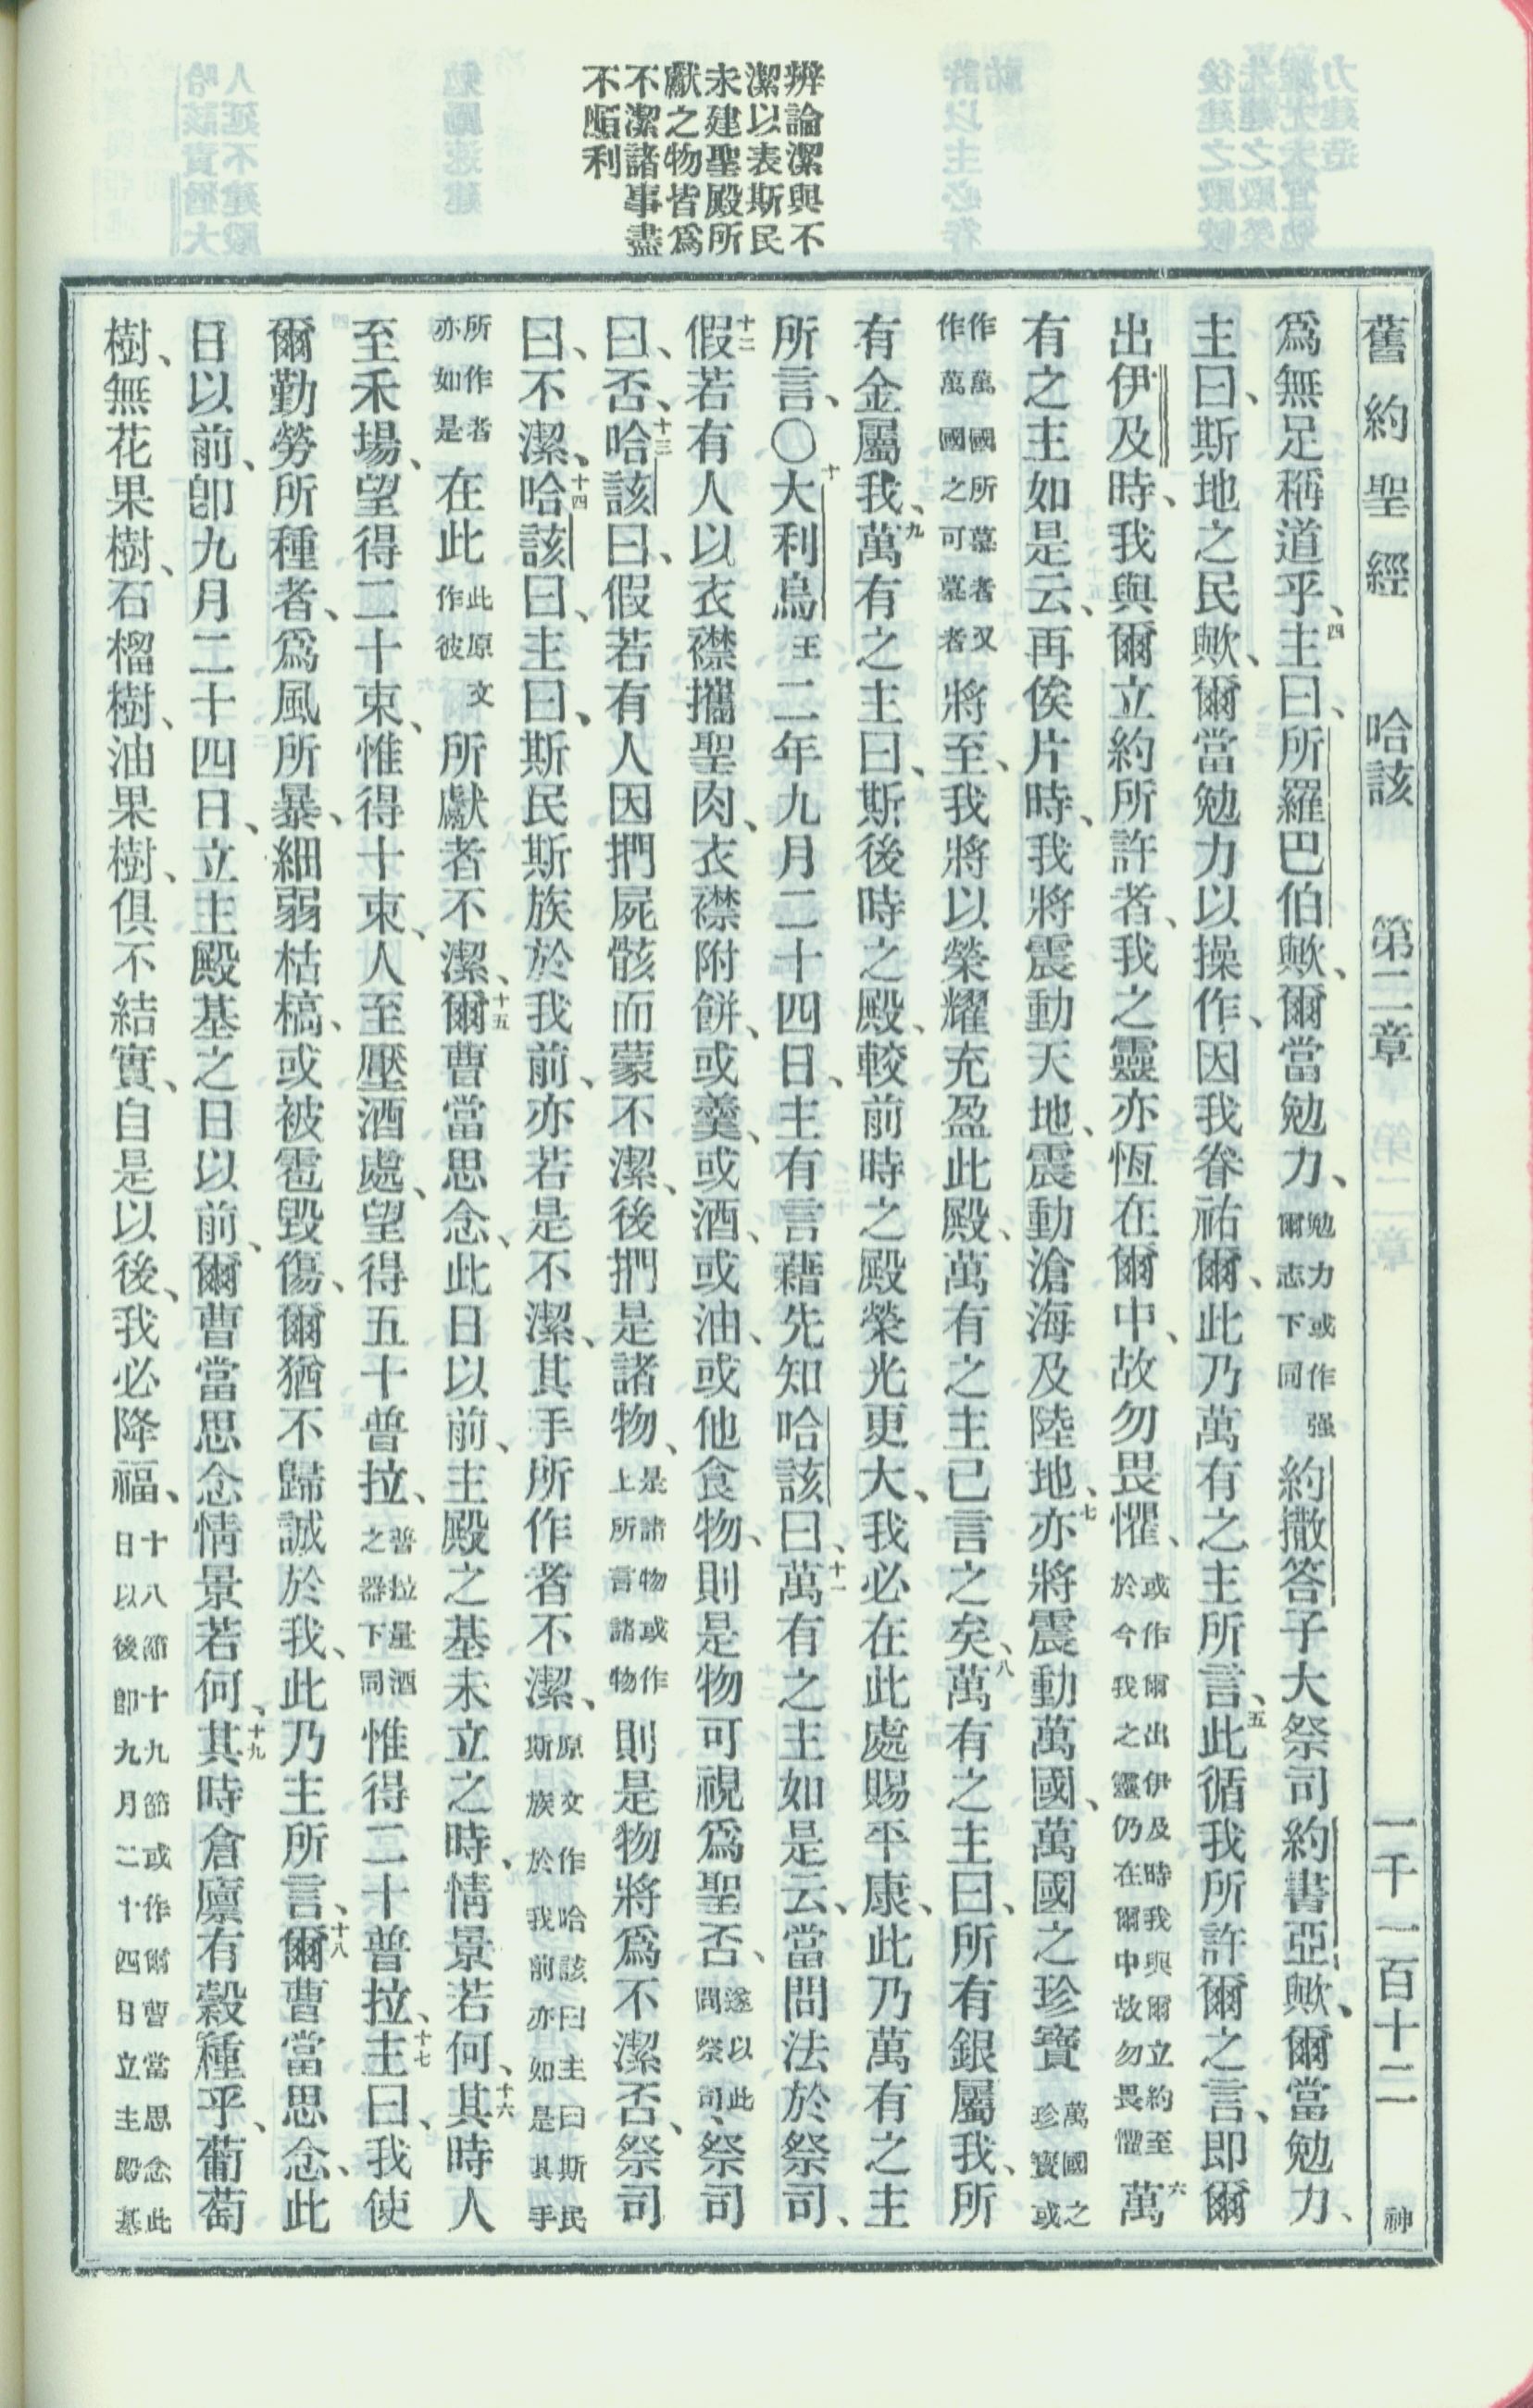 舊約聖經 哈該 第二章 一千一百十二 神
辨論潔與不
潔以表斯民
未建聖殿所
獻之物皆爲
不潔諸事盡
不順利
爲無足稱道乎、四主曰、所羅巴伯歟、爾當勉力、勉力或作强爾志下同約撒答子大祭司約書亞歟、爾當勉力、
主曰、斯地之民歟、爾當勉力以操作、因我眷祐爾、此乃萬有之主所言、五此循我所許爾之言、即爾
出伊及時、我與爾立約所許者、我之靈亦恆在爾中、故勿畏懼、或作爾出伊及時我與爾立約至於今我之靈仍在爾中故勿畏懼六萬
有之主如是云、再俟片時、我將震動天地、震動滄海及陸地、七亦將震動萬國、萬國之珍寶萬國之珍寶或
作萬國所慕者又作萬國之可慕者將至、我將以榮耀充盈此殿、萬有之主已言之矣、八萬有之主曰、所有銀屬我、所
有金屬我、九萬有之主曰、斯後時之殿、較前時之殿榮光更大、我必在此處賜平康、此乃萬有之主
所言、〇十大利烏王二年九月二十四日、主有言藉先知哈該曰、十一萬有之主如是云、當問法於祭司、
十二假若有人以衣襟攜聖肉、衣襟附餅、或羹、或酒、或油、或他食物、則是物可視爲聖否、遂以此問祭司、祭司
曰、否、十三哈該曰、假若有人因捫屍骸而蒙不潔、後捫是諸物、是諸物或作上所言諸物則是物將爲不潔否、祭司
曰、不潔、十四哈該曰、主曰、斯民斯族於我前、亦若是不潔、其手所作者不潔、原文作哈該曰主曰斯民斯族於我前亦如是其手
所作者亦如是在此此原文作彼所獻者不潔、十五爾曹當思念、此日以前、主殿之基未立之時、情景若何、十六其時人
至禾場、望得二十束、惟得十束、人至壓酒處、望得五十普拉、普拉量酒之器下同惟得二十普拉、十七主曰、我使
爾勤勞所種者、爲風所暴、細弱枯槁、或被雹毀傷、爾猶不歸誠於我、此乃主所言、十八爾曹當思念、此
日以前、卽九月二十四日、立主殿基之日以前、爾曹當思念情景若何、十九其時倉廩有穀種乎、葡萄
樹、無花果樹、石榴樹、油果樹、俱不結實、自是以後、我必降福、十八節十九節或作爾曹當思念此日以後卽九月二十四日立主殿基